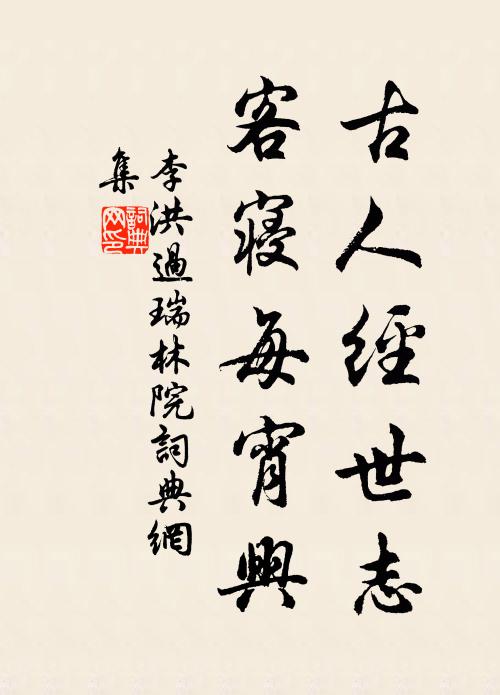 古人經世志
客寝每宵興
李洪過瑞林院詞典網
集
詞典
网印